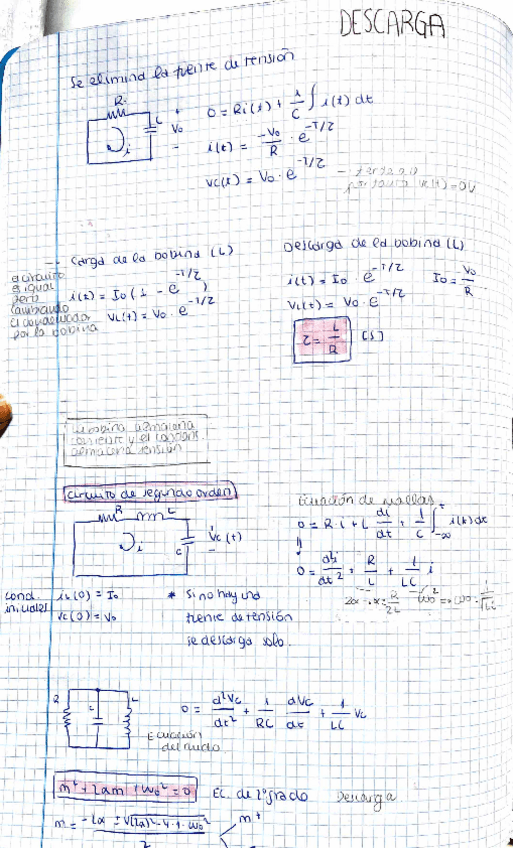 DESCARGA
Se elimina la fuente de tensión
R
C
V₀
i
0 = Ri(t) + 1/C ∫ i(t) dt
i(t) = -V₀/R · e^-T/2
vc(t) = V₀ · e^-T/2
por tanto vc(t) = 0V
Carga de la bobina (L)
el circuito
es igual
pero
cambiando
el condensador
por la bobina
i(t) = I₀(1 - e^-T/2)
VL(t) = V₀ · e^-T/2
Descarga de la bobina (L)
i(t) = I₀ · e^-T/2
I₀ = V₀/R
VL(t) = V₀ · e^-T/2
τ = L/R [s]
La bobina almacena
corriente y el condens.
almacena tensión
Circuito de segundo orden
R
L
i
C
Vc(t)
Ecuación de mallas
0 = R·i + L di/dt + 1/C ∫_-∞^t i(t) dt
0 = di/dt² + R/L + 1/LC i
2α → α = R/2L
ω₀² => ω₀ = 1/√LC
cond.
iniciales
iL(0) = I₀
vc(0) = V₀
* Si no hay una
fuente de tensión
se descarga solo.
R
C
L
Ecuación
del nudo
0 = d²Vc/dt² + 1/RC dVc/dt + 1/LC Vc
m² + 2αm + ω₀² = 0
Ec. de 2º grado
Descarga
m = -2α ± √(2α)² - 4·1·ω₀² / 2
m⁺